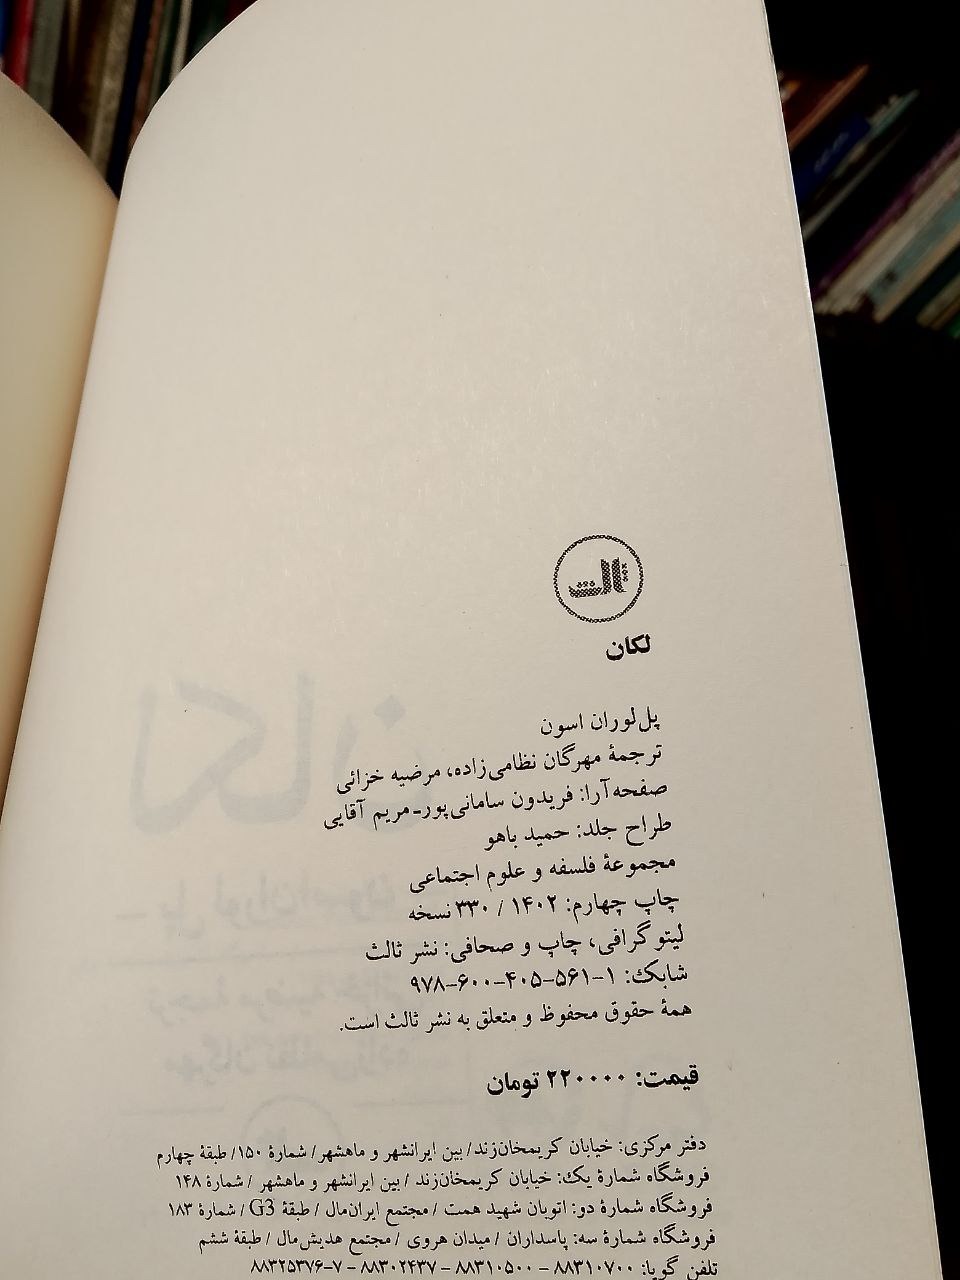 ثالث
لکان
پل‌لوران اسون
ترجمهٔ مهرگان نظامی‌زاده، مرضیه خزائی
صفحه‌آرا: فریدون سامانی‌پور-مریم آقایی
طراح جلد: حمید باهو
مجموعهٔ فلسفه و علوم اجتماعی
چاپ چهارم: ۱۴۰۲ / ۳۳۰ نسخه
لیتوگرافی، چاپ و صحافی: نشر ثالث
شابک: ۱-۵۶۱-۴۰۵-۶۰۰-۹۷۸
همهٔ حقوق محفوظ و متعلق به نشر ثالث است.
قیمت: ۲۲۰۰۰۰ تومان
دفتر مرکزی: خیابان کریمخان‌زند/ بین ایرانشهر و ماهشهر/ شمارهٔ ۱۵۰/ طبقهٔ چهارم
فروشگاه شمارهٔ یک: خیابان کریمخان‌زند / بین ایرانشهر و ماهشهر / شمارهٔ ۱۴۸
فروشگاه شمارهٔ دو: اتوبان شهید همت / مجتمع ایران‌مال / طبقهٔ G3 / شمارهٔ ۱۸۳
فروشگاه شمارهٔ سه: پاسداران / میدان هروی / مجتمع هدیش‌مال / طبقهٔ ششم
تلفن گویا: ۸۸۳۱۰۷۰۰ - ۸۸۳۱۰۵۰۰ - ۸۸۳۰۲۴۳۷ - ۷-۸۸۳۲۵۳۷۶